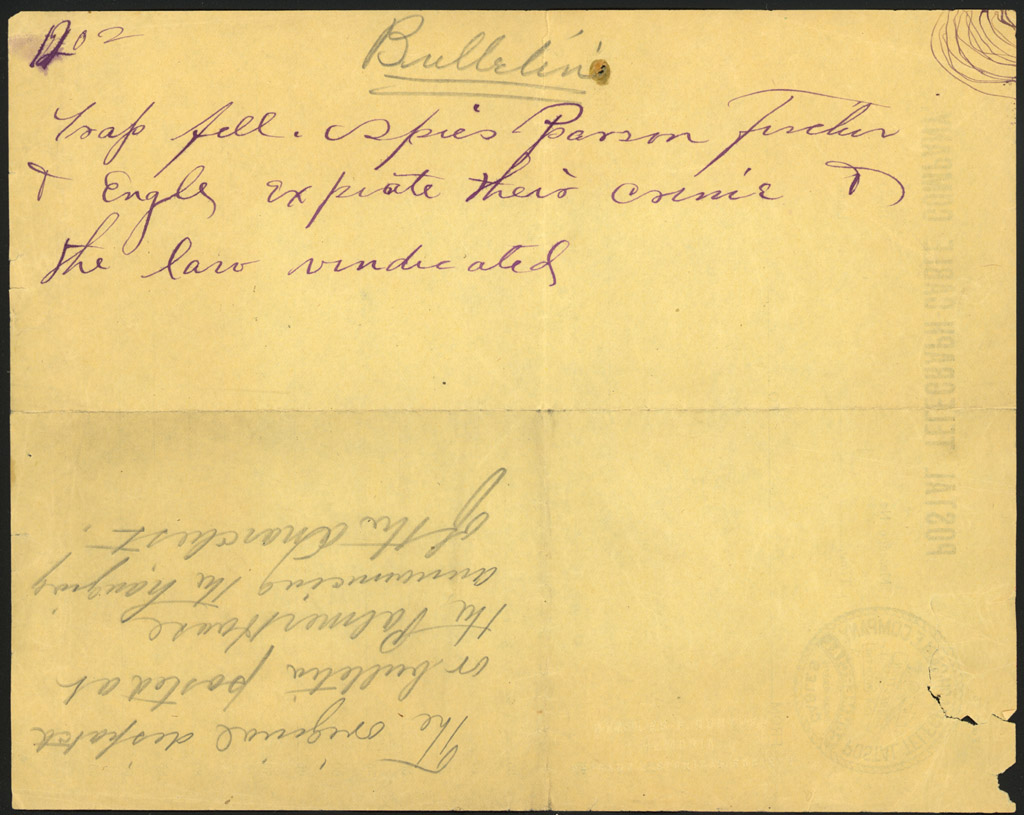 1202
Bulletin
Trap fell. Spies Parson Fischer
& Engle expiate their crime &
the law vindicated
The original dispatch
or bulletin posted at
the Palmer House
announcing the hanging
of the Anarchist.
POSTAL TELEGRAPH CABLE COMPANY